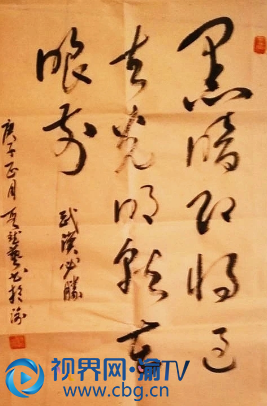 黑暗即将过
去光明就在
眼前
武汉必胜
庚子正月
视界网·渝TV
www.cbg.cn